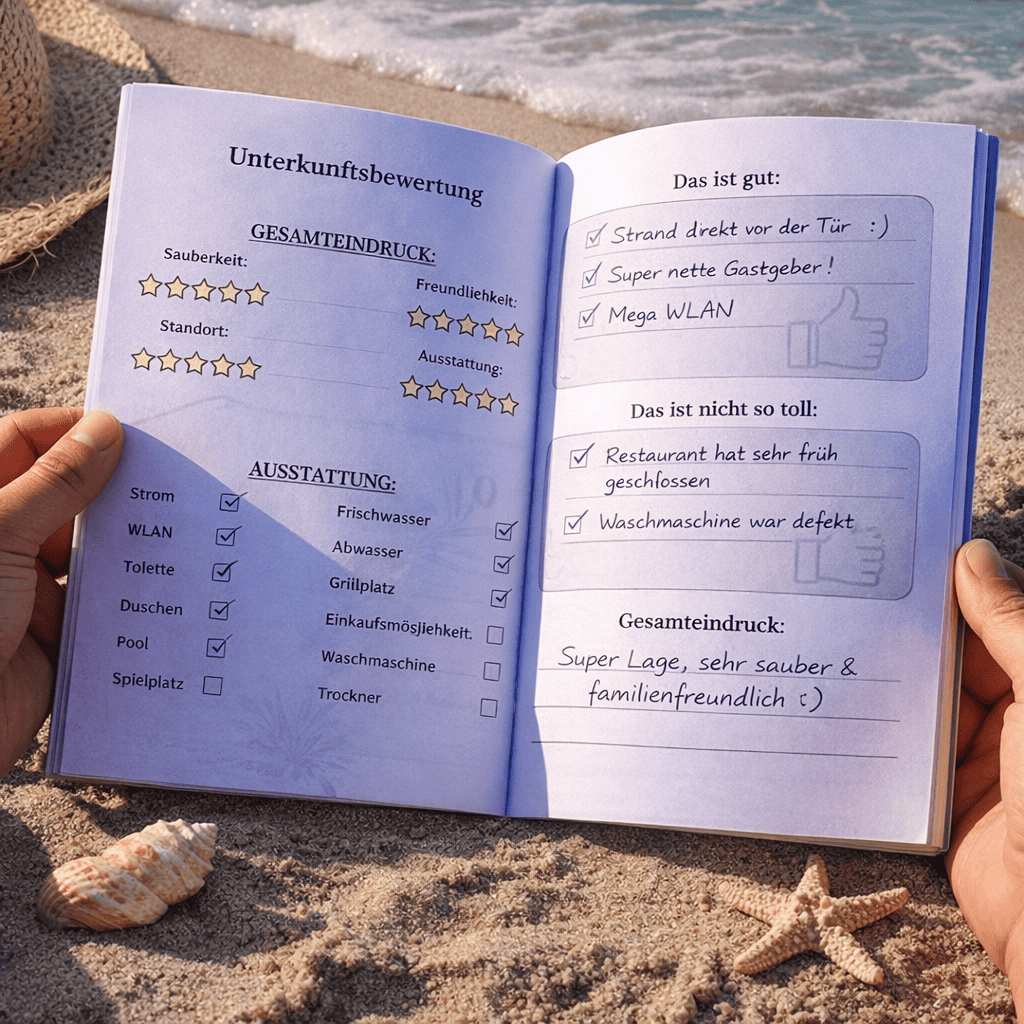 Unterkunftsbewertung
GESAMTEINDRUCK:
Sauberkeit:
Freundliehkeit:
Standort:
Ausstattung:
AUSSTATTUNG:
Strom
WLAN
Tolette
Duschen
Pool
Spielplatz
Frischwasser
Abwasser
Grillplatz
Waschmaschine
Trockner
Das ist gut:
Strand direkt vor der Tür :)
Super nette Gastgeber!
Mega WLAN
Das ist nicht so toll:
Restaurant hat sehr früh
geschlossen
Waschmaschine war defekt
Gesamteindruck:
Super Lage, sehr sauber &
familienfreundlich :)